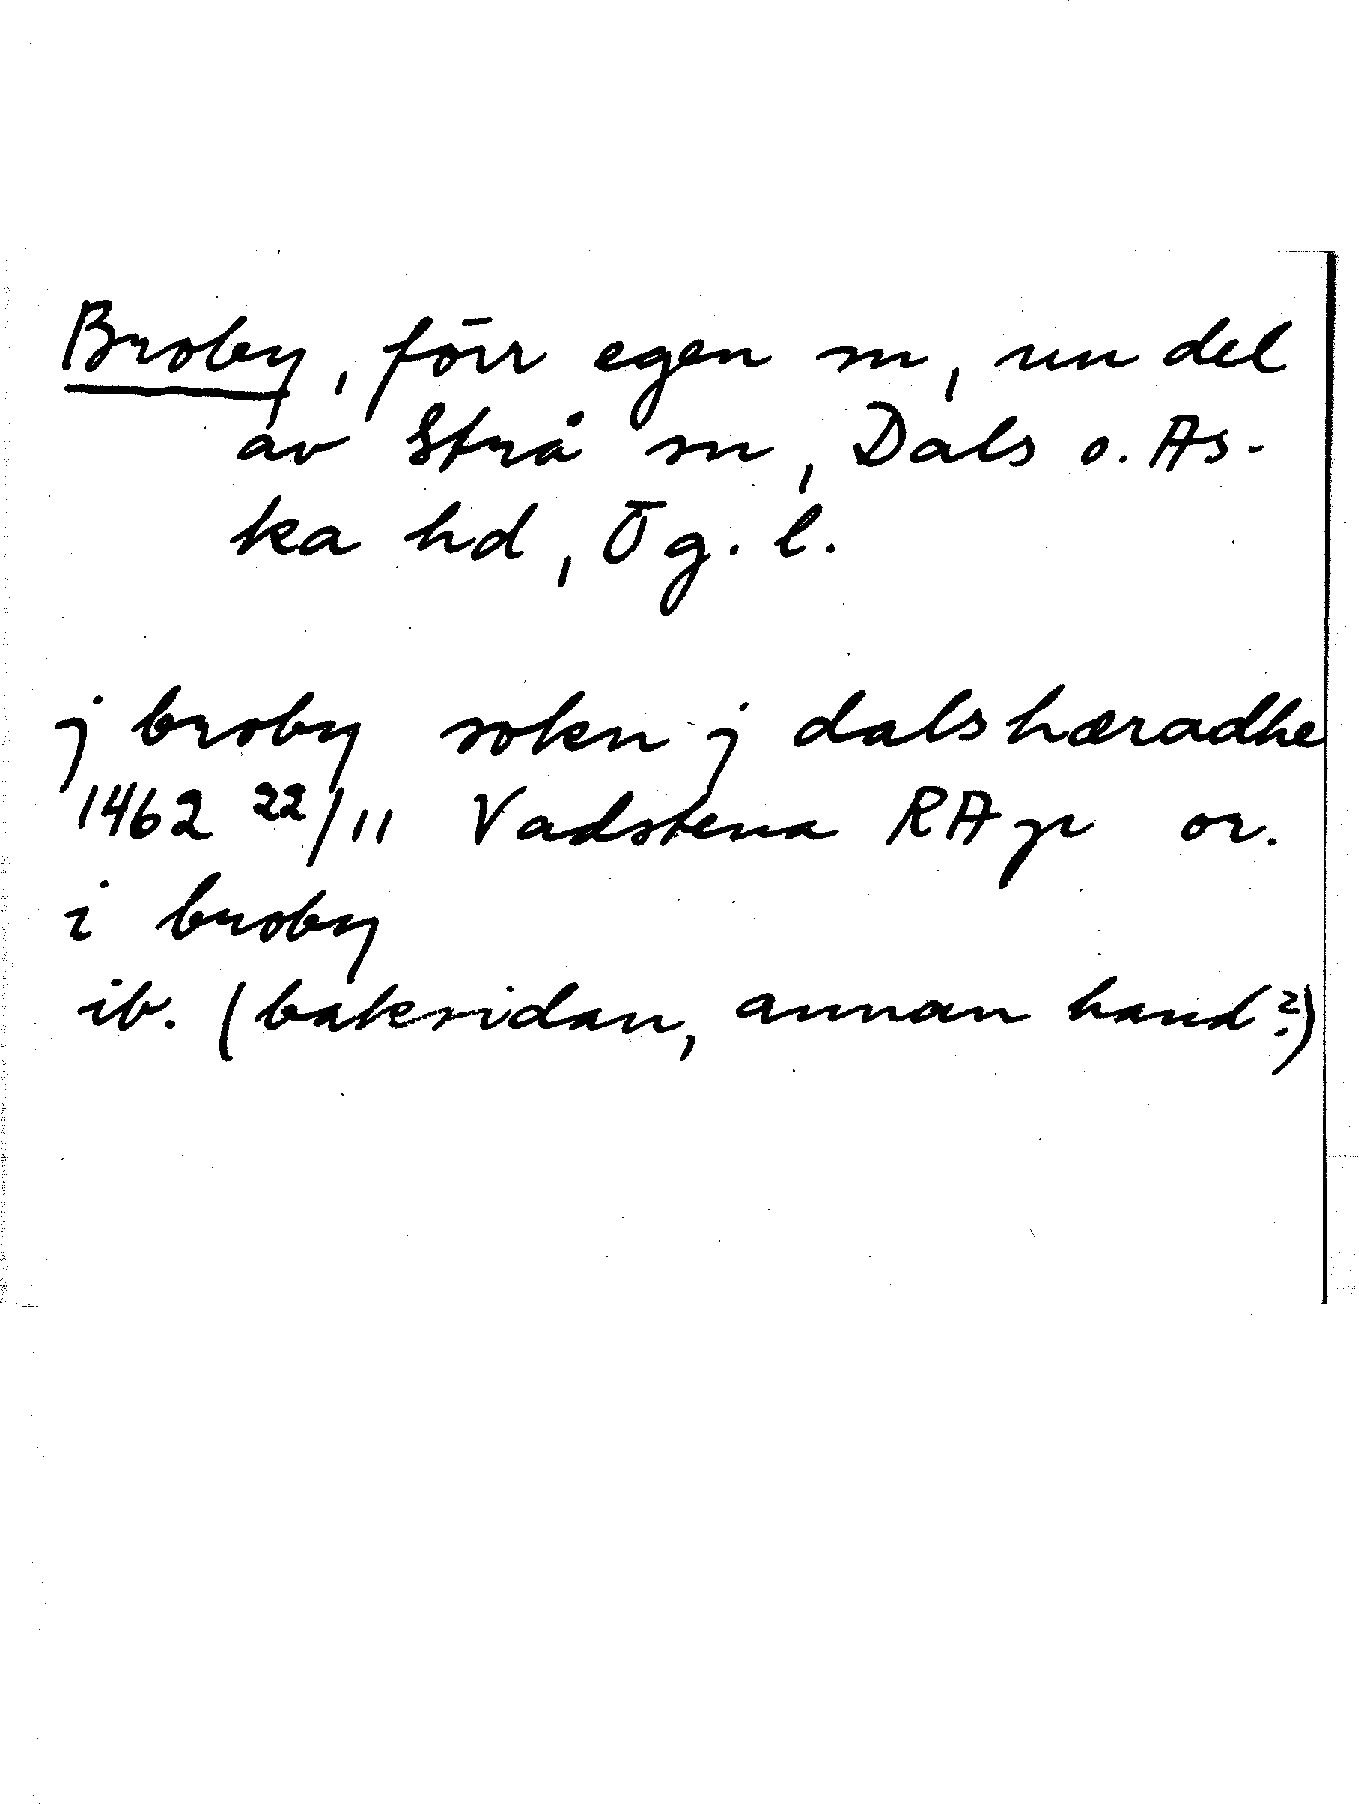 Broby, förr egen sn, nu del
av Strå sn, Dals o. As-
ka hd, Ög. l.
j broby sokn j dalshæradhe
1462 22/11 Vadstena RAp or.
i broby
ib. (baksidan, annan hand?)